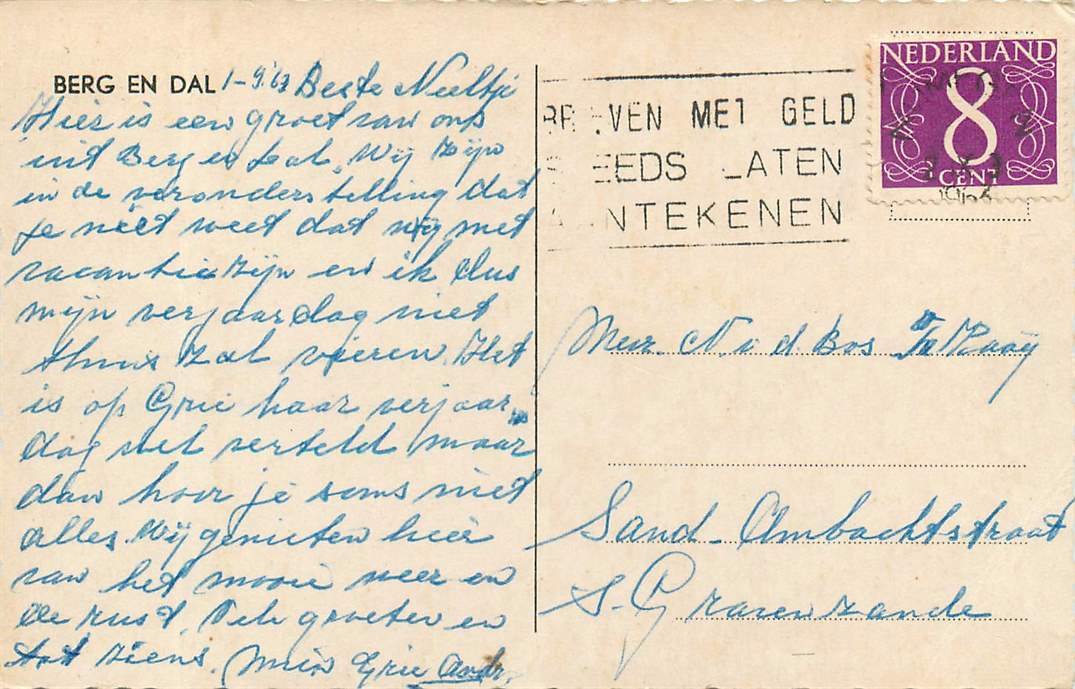 BERG EN DAL 1-9-'63 Beste Neeltje
Hier is een groet van ons
uit Berg en Dal. Wij zijn
in de veronderstelling dat
je niet weet dat wij met
vacantie zijn en ik dus
mijn verjaardag niet
thuis zal vieren. Het
is op Grie haar verjaar
dag wel verteld maar
dan hoor je soms niet
alles. Wij genieten hier
van het mooie weer en
de rust. Vele groeten en
tot ziens. Mein Grie Andr.
BRIEVEN MET GELD
STEEDS LATEN
AANTEKENEN
NEDERLAND
8
CENT
Mevr. N. v d Bos
Sand-Ambachtstraat
S-Gravenzande